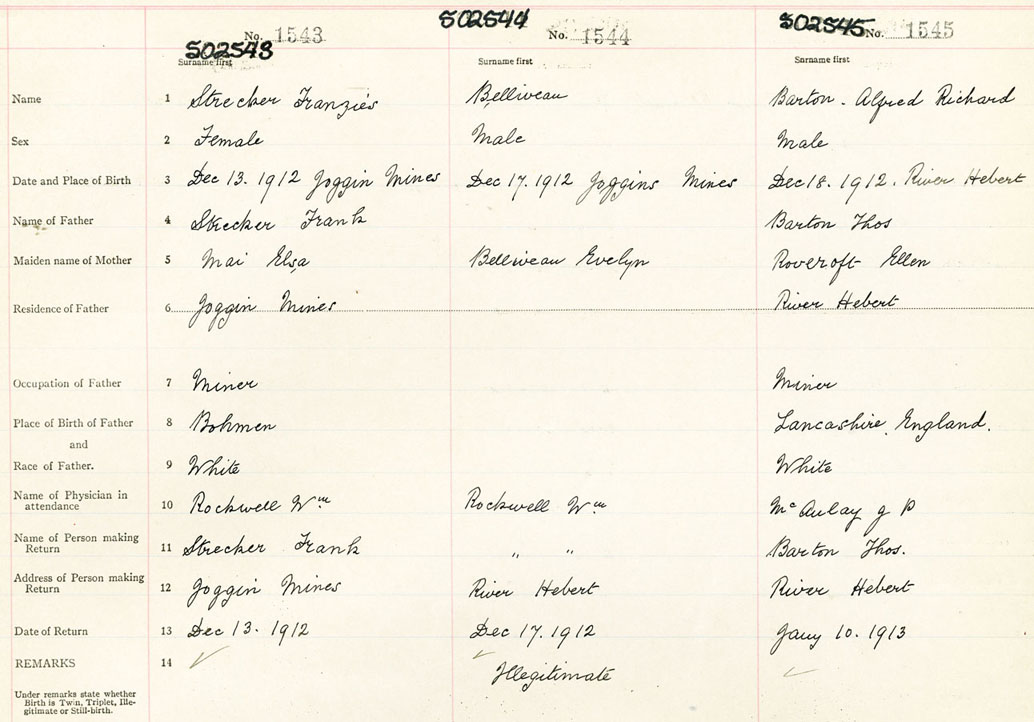 502543 502544 502545
No. 1543 No. 1544 No. 1545
Surname first Surname first Surname first
Name 1 Strecker Franziés Belliveau Barton - Alfred Richard
Sex 2 Female Male Male
Date and Place of Birth 3 Dec 13. 1912 Joggin Mines Dec 17. 1912 Joggins Mines Dec 18. 1912. River Hebert
Name of Father 4 Strecker Frank Barton Thos
Maiden name of Mother 5 Mai Elsa Belliveau Evelyn Rovcroft Ellen
Residence of Father 6 Joggin Mines River Hebert
Occupation of Father 7 Miner Miner
Place of Birth of Father 8 Bohmen Lancashire, England.
and
Race of Father. 9 White White
Name of Physician in
attendance 10 Rockwell Wm Rockwell Wm McAulay J P
Name of Person making
Return 11 Strecker Frank " " Barton Thos.
Address of Person making
Return 12 Joggin Mines River Hebert River Hebert
Date of Return 13 Dec 13. 1912 Dec 17. 1912 Jany 10. 1913
REMARKS 14 ✓ ✓ ✓
Illegitimate
Under remarks state whether
Birth is Twin, Triplet, Ille-
gitimate or Still-birth.